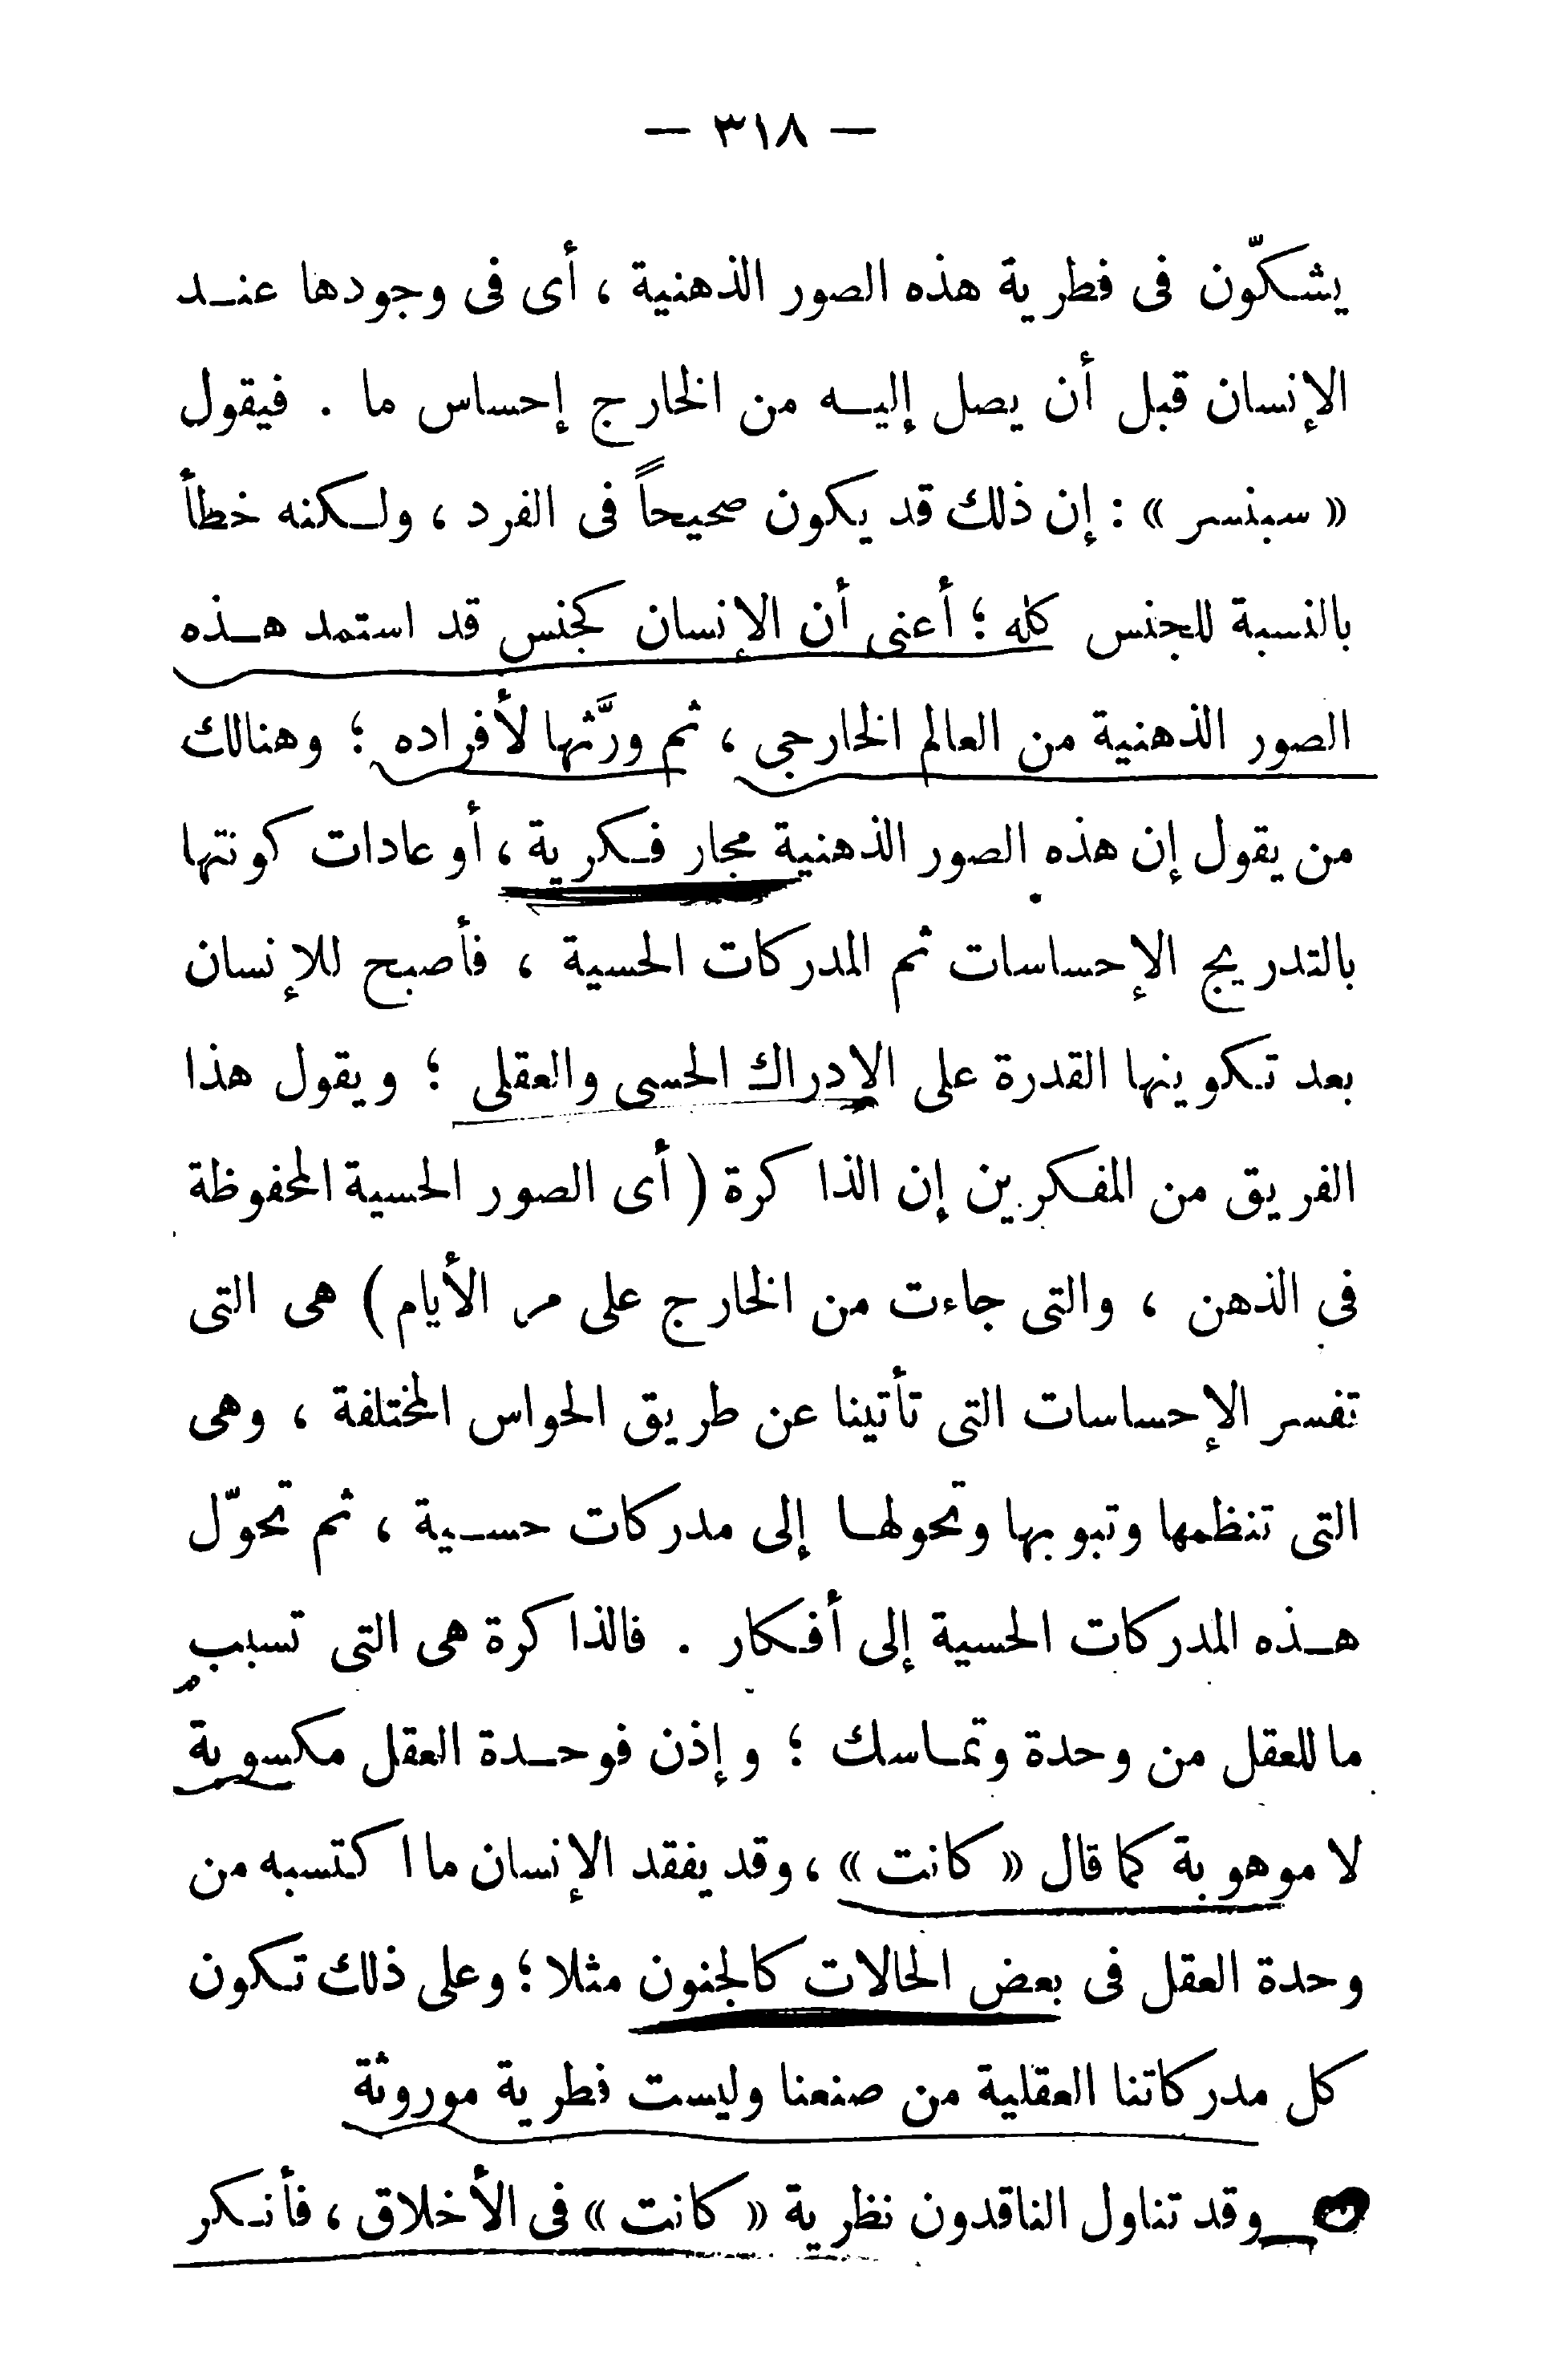 — ٣١٨ —
يشكّون فى فطرية هذه الصور الذهنية ، أى فى وجودها عند
الإنسان قبل أن يصل إليه من الخارج إحساس ما . فيقول
« سبنسر » : إن ذلك قد يكون صحيحاً فى الفرد ، ولكنه خطأ
بالنسبة للجنس كله ؛ أعنى أن الإنسان كجنس قد استمد هذه
الصور الذهنية من العالم الخارجى ، ثم ورَّثها لأفراده ؛ وهنالك
من يقول إن هذه الصور الذهنية مجار فكرية ، أو عادات كونتها
بالتدريج الإحساسات ثم المدركات الحسية ، فأصبح للإنسان
بعد تكوينها القدرة على الإدراك الحسى والعقلى ؛ ويقول هذا
الفريق من المفكرين إن الذاكرة ( أى الصور الحسية المحفوظة
فى الذهن ، والتى جاءت من الخارج على مر الأيام ) هى التى
تفسر الإحساسات التى تأتينا عن طريق الحواس المختلفة ، وهى
التى تنظمها وتبوبها وتحولها إلى مدركات حسية ، ثم تحوّل
هذه المدركات الحسية إلى أفكار . فالذاكرة هى التى تسبب
ما للعقل من وحدة وتماسك ؛ وإذن فوحدة العقل مكسوبة
لا موهوبة كما قال « كانت » ، وقد يفقد الإنسان ما اكتسبه من
وحدة العقل فى بعض الحالات كالجنون مثلا ؛ وعلى ذلك تكون
كل مدركاتنا العقلية من صنعنا وليست فطرية موروثة
وقد تناول الناقدون نظرية « كانت » فى الأخلاق ، فأنكر